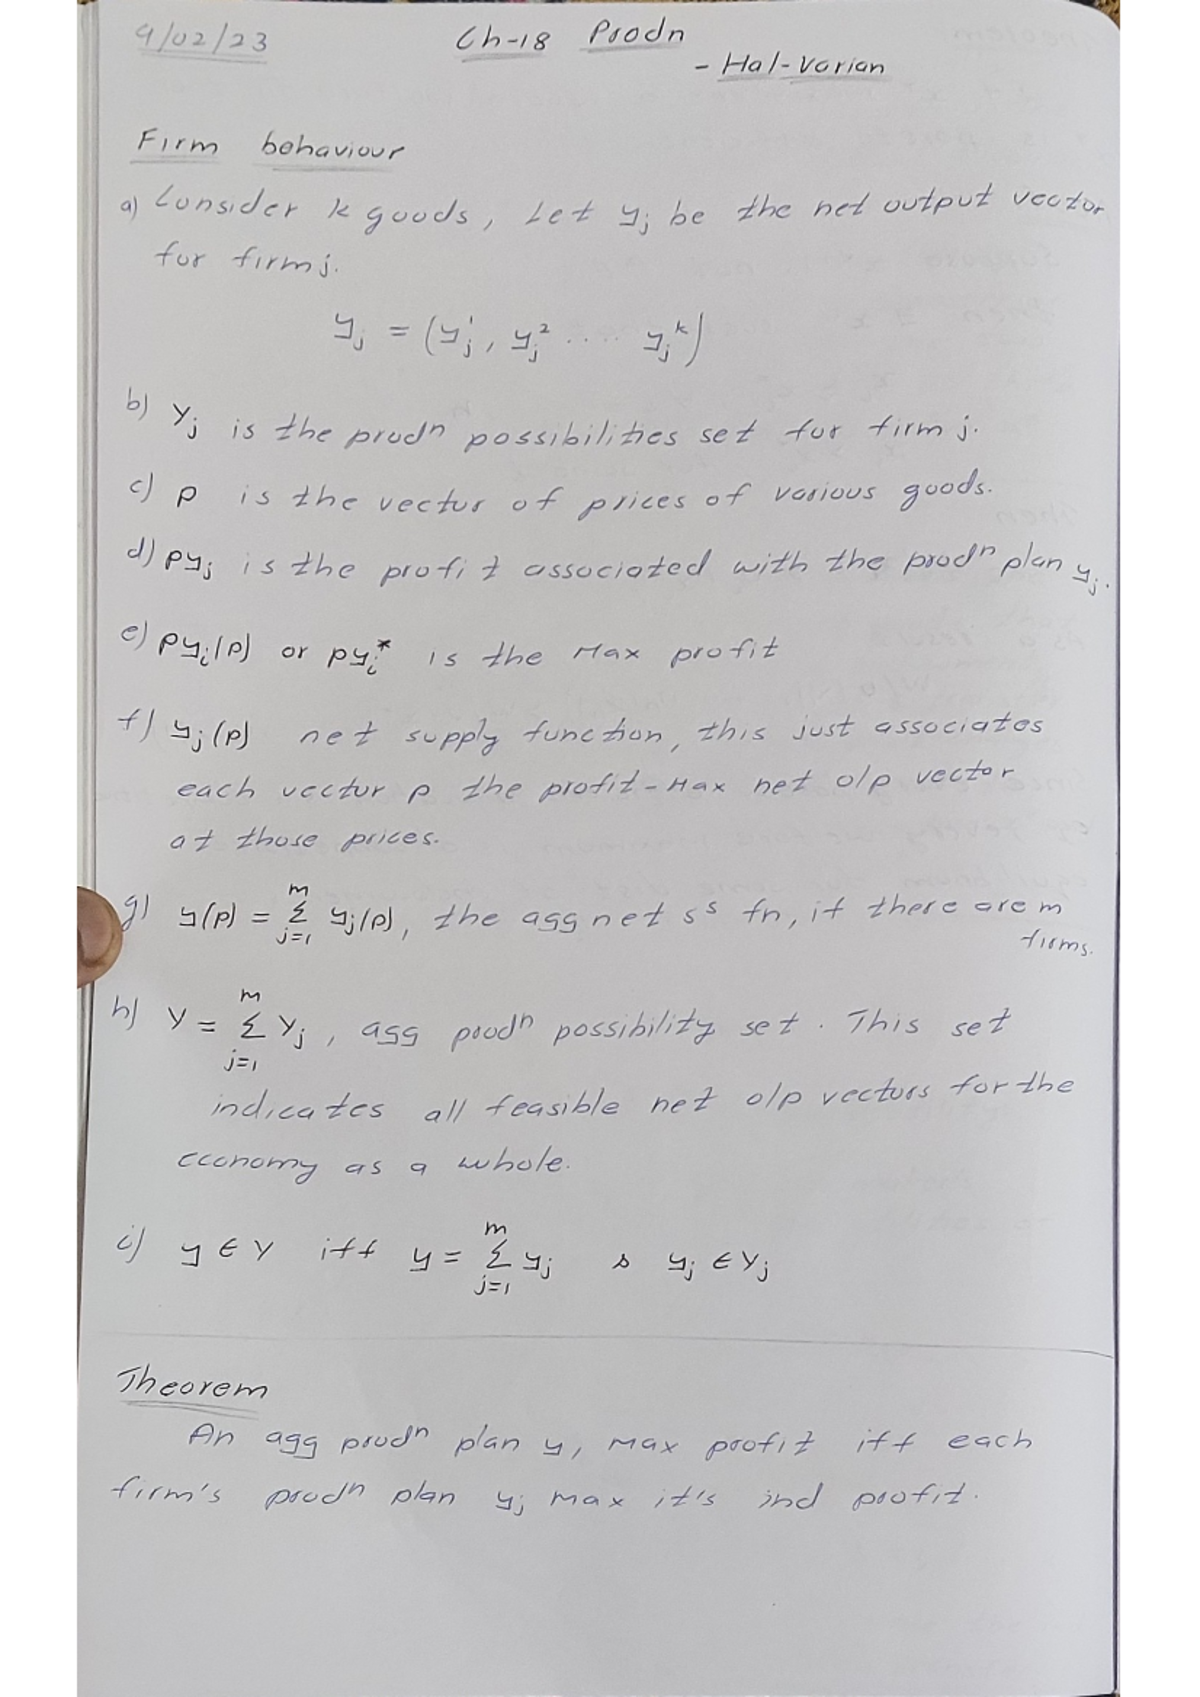 4/02/23 Ch-18 Prodn
- Hal-Varian
Firm behaviour
a) Consider k goods, Let y_j be the net output vector
for firm j.
y_j = (y_j^1, y_j^2 .... y_j^k)
b) Y_j is the prodⁿ possibilities set for firm j.
c) p is the vector of prices of various goods.
d) py_j is the profit associated with the prodⁿ plan y_j.
e) py_i(p) or py_i^* is the Max profit
f) y_j(p) net supply function, this just associates
each vector p the profit-Max net o/p vector
at those prices.
g) y(p) = Σ_{j=1}^m y_j(p), the agg net sˢ fn, if there are m
firms.
h) Y = Σ_{j=1}^m Y_j, agg prodⁿ possibility set. This set
indicates all feasible net o/p vectors for the
economy as a whole.
i) y ∈ Y iff y = Σ_{j=1}^m y_j & y_j ∈ Y_j
Theorem
An agg prodⁿ plan y, Max profit iff each
firm's prodⁿ plan y_j max it's ind profit.